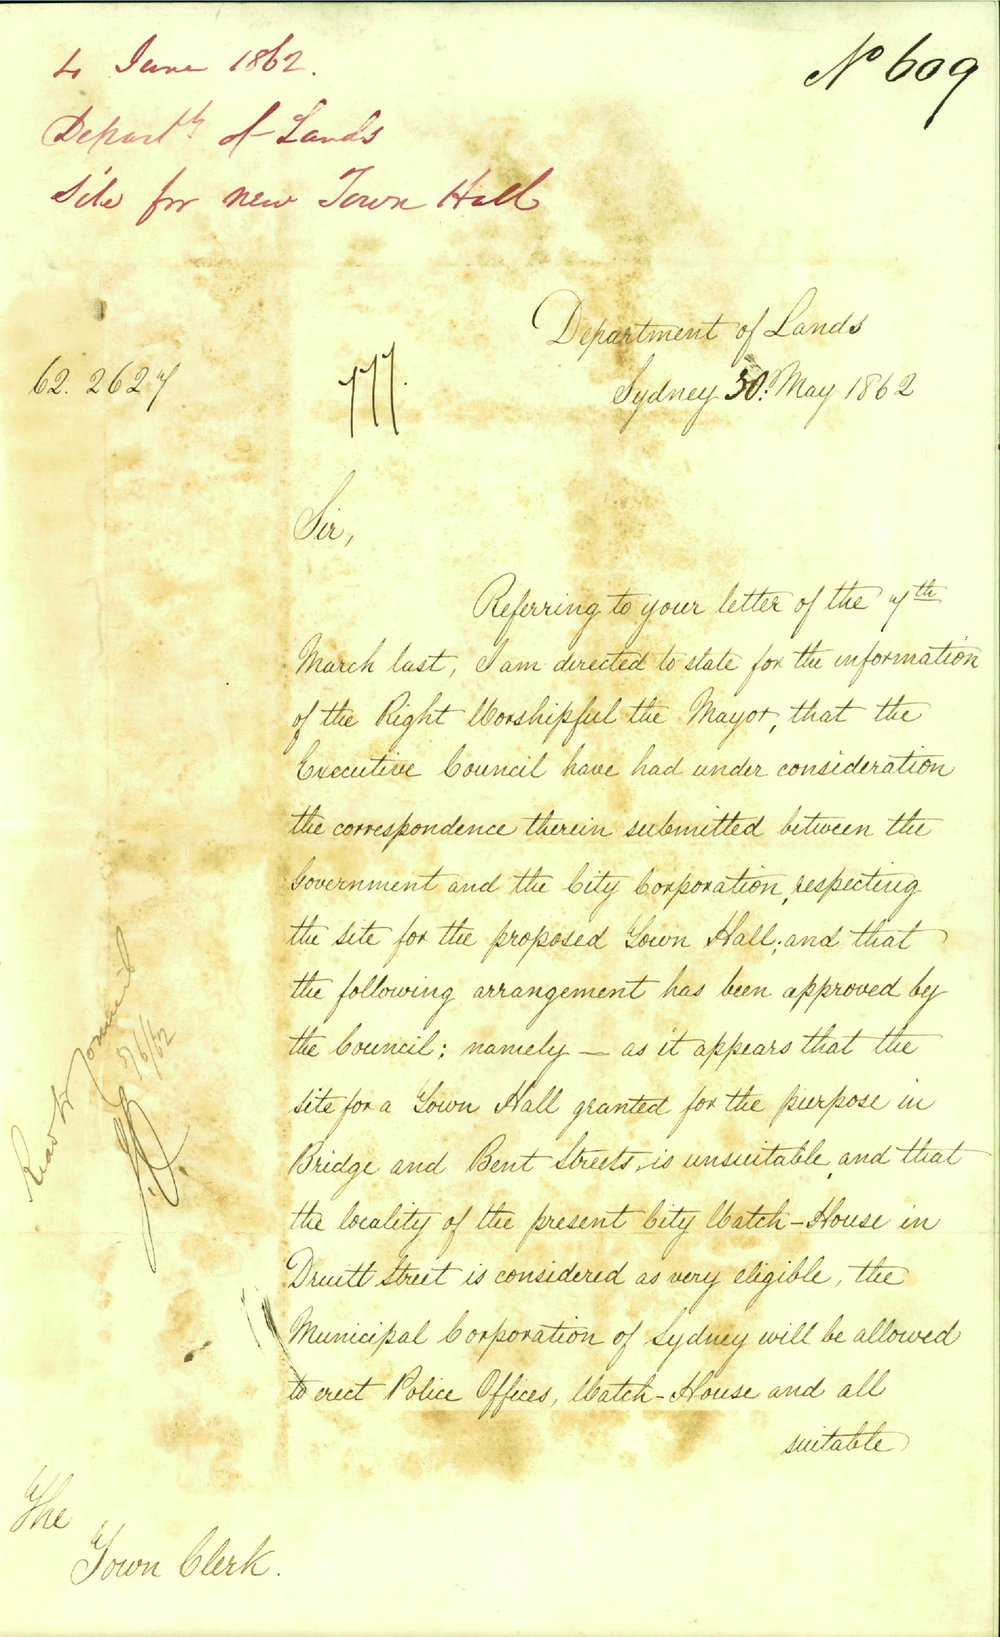 4 June 1862.
Departt of Lands
Site for new Town Hall
No 609
Department of Lands
Sydney 30. May 1862
62. 2627
777.
Sir,
Referring to your letter of the 7th
March last, I am directed to state for the information
of the Right Worshipful the Mayor, that the
Executive Council have had under consideration
the correspondence therein submitted between the
Government and the City Corporation, respecting
the site for the proposed Town Hall; and that
the following arrangement has been approved by
the Council: namely — as it appears that the
site for a Town Hall granted for the purpose in
Bridge and Bent Streets, is unsuitable, and that
the locality of the present City Watch-House in
Druitt Street is considered as very eligible, the
Municipal Corporation of Sydney will be allowed
to erect Police Offices, Watch-House and all
suitable
The
Town Clerk.
Read to Council
5/6/62